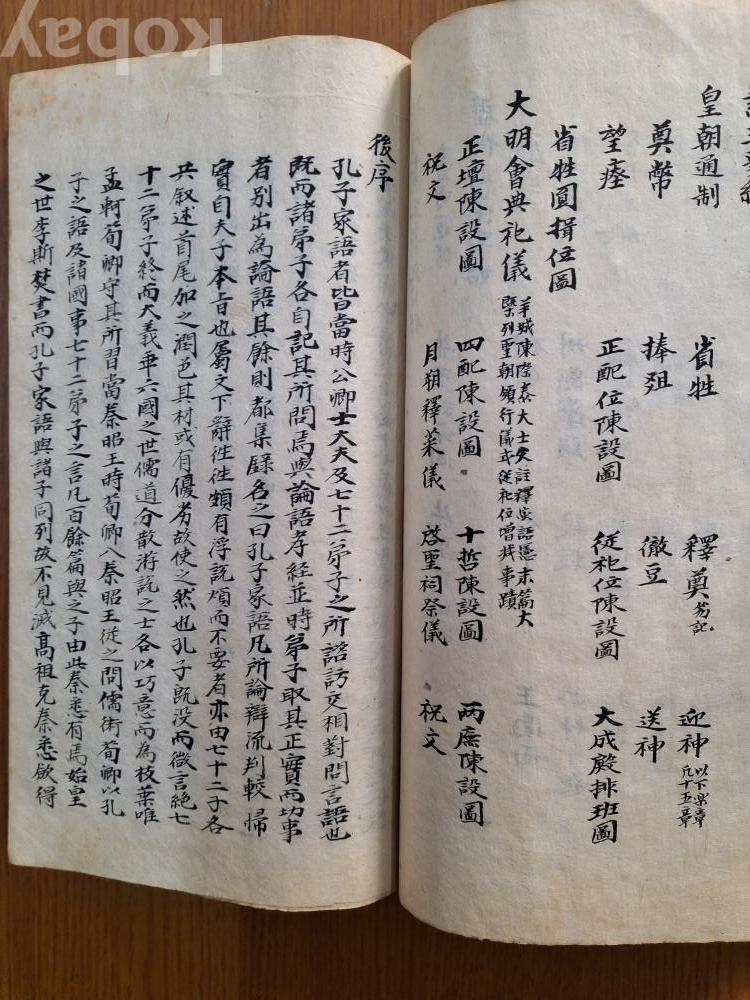 皇朝通制 省牲 釋奠笏記 迎神以下樂章凡十五章
奠幣 捧俎 徹豆 送神
望瘞 正配位陳設圖 從祀位陳設圖 大成殿排班圖
省牲圓揖位圖
大明會典祀儀 羊城陳際泰大士父註釋 語 末篇大
槩列聖朝頒行儀式從祀位增 事蹟
正壇陳設圖 四配陳設圖 十哲陳設圖 两廡陳設圖
祝文 月朔釋菜儀 啓聖祠祭儀 祝文
後序
孔子家語者皆當時公卿士大夫及七十二弟子之所諮訪交相對問言語也
既而諸弟子各自記其所問焉與論語孝経並時弟子取其正實而切事
者別出為論語其餘則都集録名之曰孔子家語凡所論辯流判較歸
實自夫子本旨也屬文下辭徃徃頗有浮說煩而不要者亦由七十二子各
共叙述首尾加之潤色其材或有優劣故使之然也孔子既没而微言絶七
十二弟子終而大義乖六國之世儒道分散游說之士各以巧意而為枝葉唯
孟軻荀卿守其所習當秦昭王時荀卿入秦昭王從之問儒術荀卿以孔
子之語及諸國事七十二弟子之言凡百餘篇與之子由此秦悉有焉始皇
之世李斯焚書而孔子家語與諸子同列故不見滅高祖克秦悉歛得
kobay